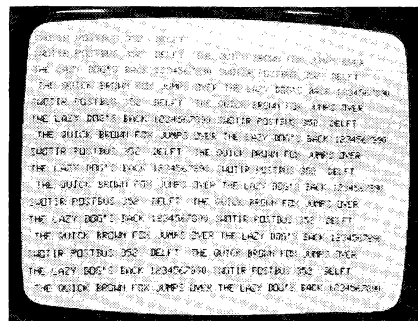 SWOTIR POSTBUS 352 DELFT
SWOTIR POSTBUS 352 DELFT THE QUICK BROWN FOX JUMPS OVER
THE LAZY DOG'S BACK 1234567890 SWOTIR POSTBUS 352 DELFT
THE QUICK BROWN FOX JUMPS OVER THE LAZY DOG'S BACK 1234567890
SWOTIR POSTBUS 352 DELFT THE QUICK BROWN FOX JUMPS OVER
THE LAZY DOG'S BACK 1234567890 SWOTIR POSTBUS 352 DELFT
THE QUICK BROWN FOX JUMPS OVER THE LAZY DOG'S BACK 1234567890
SWOTIR POSTBUS 352 DELFT THE QUICK BROWN FOX JUMPS OVER
THE LAZY DOG'S BACK 1234567890 SWOTIR POSTBUS 352 DELFT
THE QUICK BROWN FOX JUMPS OVER THE LAZY DOG'S BACK 1234567890
SWOTIR POSTBUS 352 DELFT THE QUICK BROWN FOX JUMPS OVER
THE LAZY DOG'S BACK 1234567890 SWOTIR POSTBUS 352 DELFT
THE QUICK BROWN FOX JUMPS OVER THE LAZY DOG'S BACK 1234567890
SWOTIR POSTBUS 352 DELFT THE QUICK BROWN FOX JUMPS OVER
THE LAZY DOG'S BACK 1234567890 SWOTIR POSTBUS 352 DELFT
THE QUICK BROWN FOX JUMPS OVER THE LAZY DOG'S BACK 1234567890